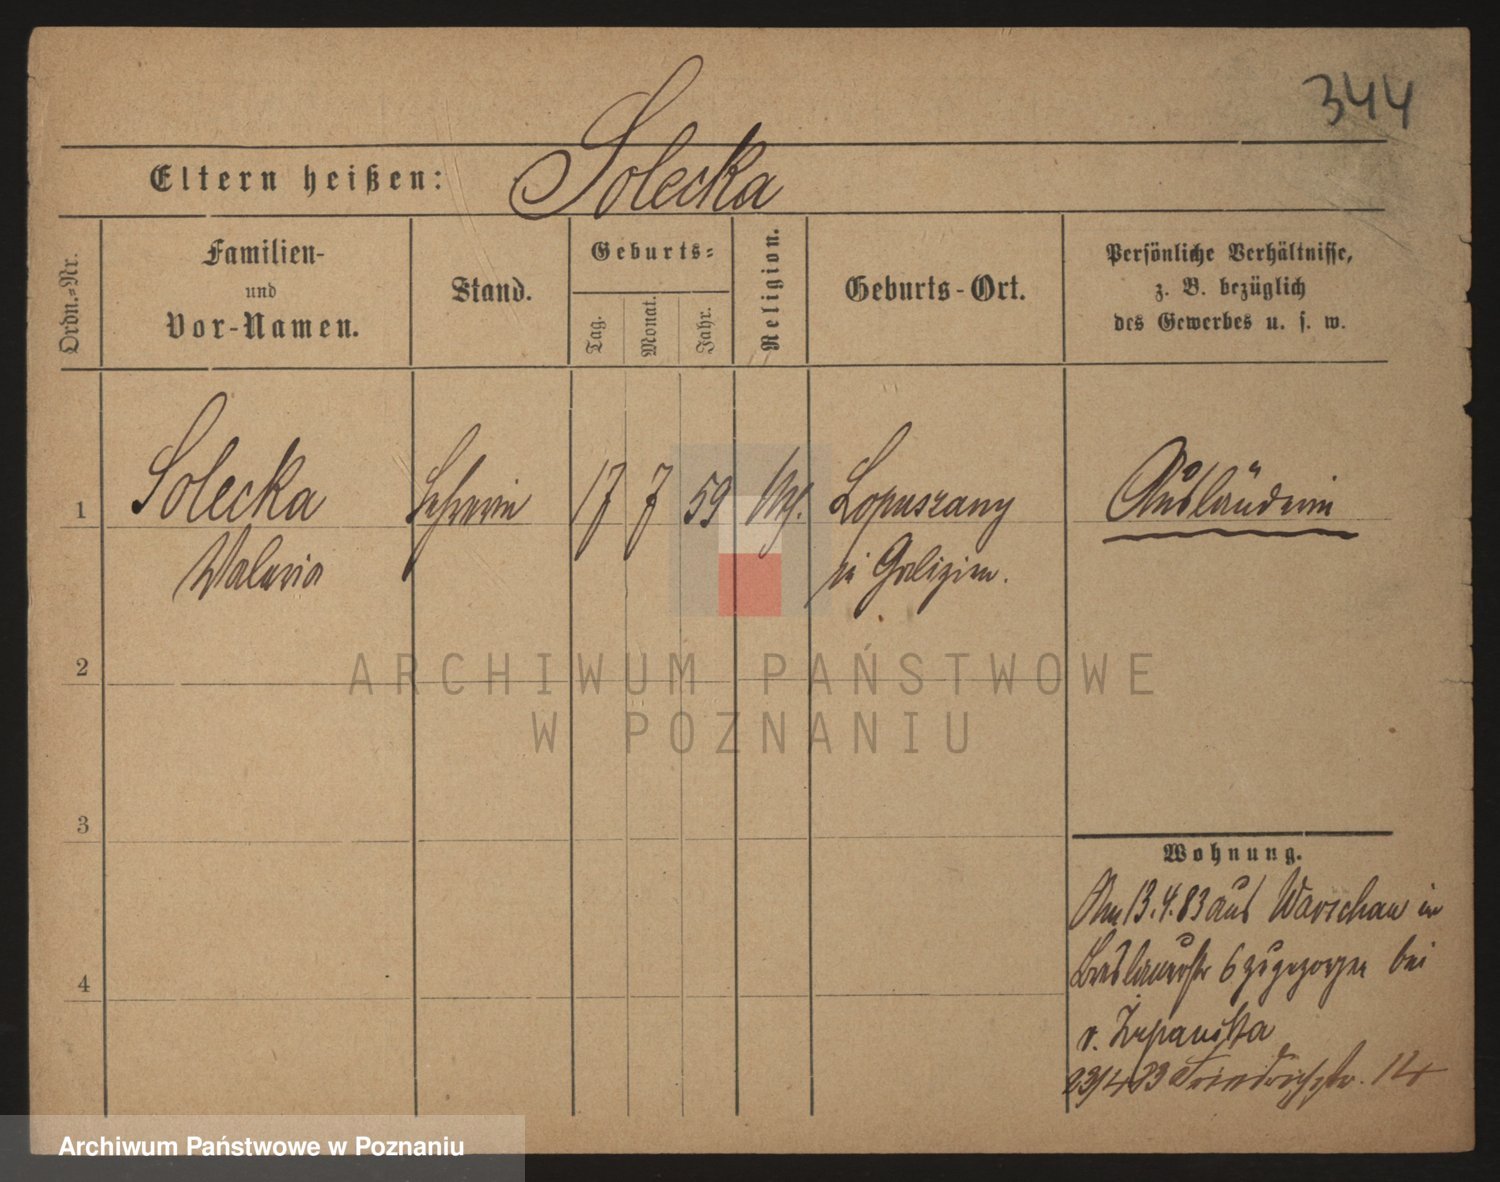 344
Eltern heißen: Solecka
Ordn.=Nr.
Familien-
und
Vor-Namen.
Stand.
Geburts=
Tag.
Monat.
Jahr.
Religion.
Geburts-Ort.
Persönliche Verhältnisse,
z. B. bezüglich
des Gewerbes u. s. w.
1 Solecka 17 7 59 Lopuszany Ausländerin
Valeria in Galizien.
2
ARCHIWUM PAŃSTWOWE
W POZNANIU
3
Wohnung.
Am 13.4.83 aus Warschau in
Breslauerstr 6 zugezogen bei
4
v.
23/4 83 Friedrichstr. 14
Archiwum Państwowe w Poznaniu